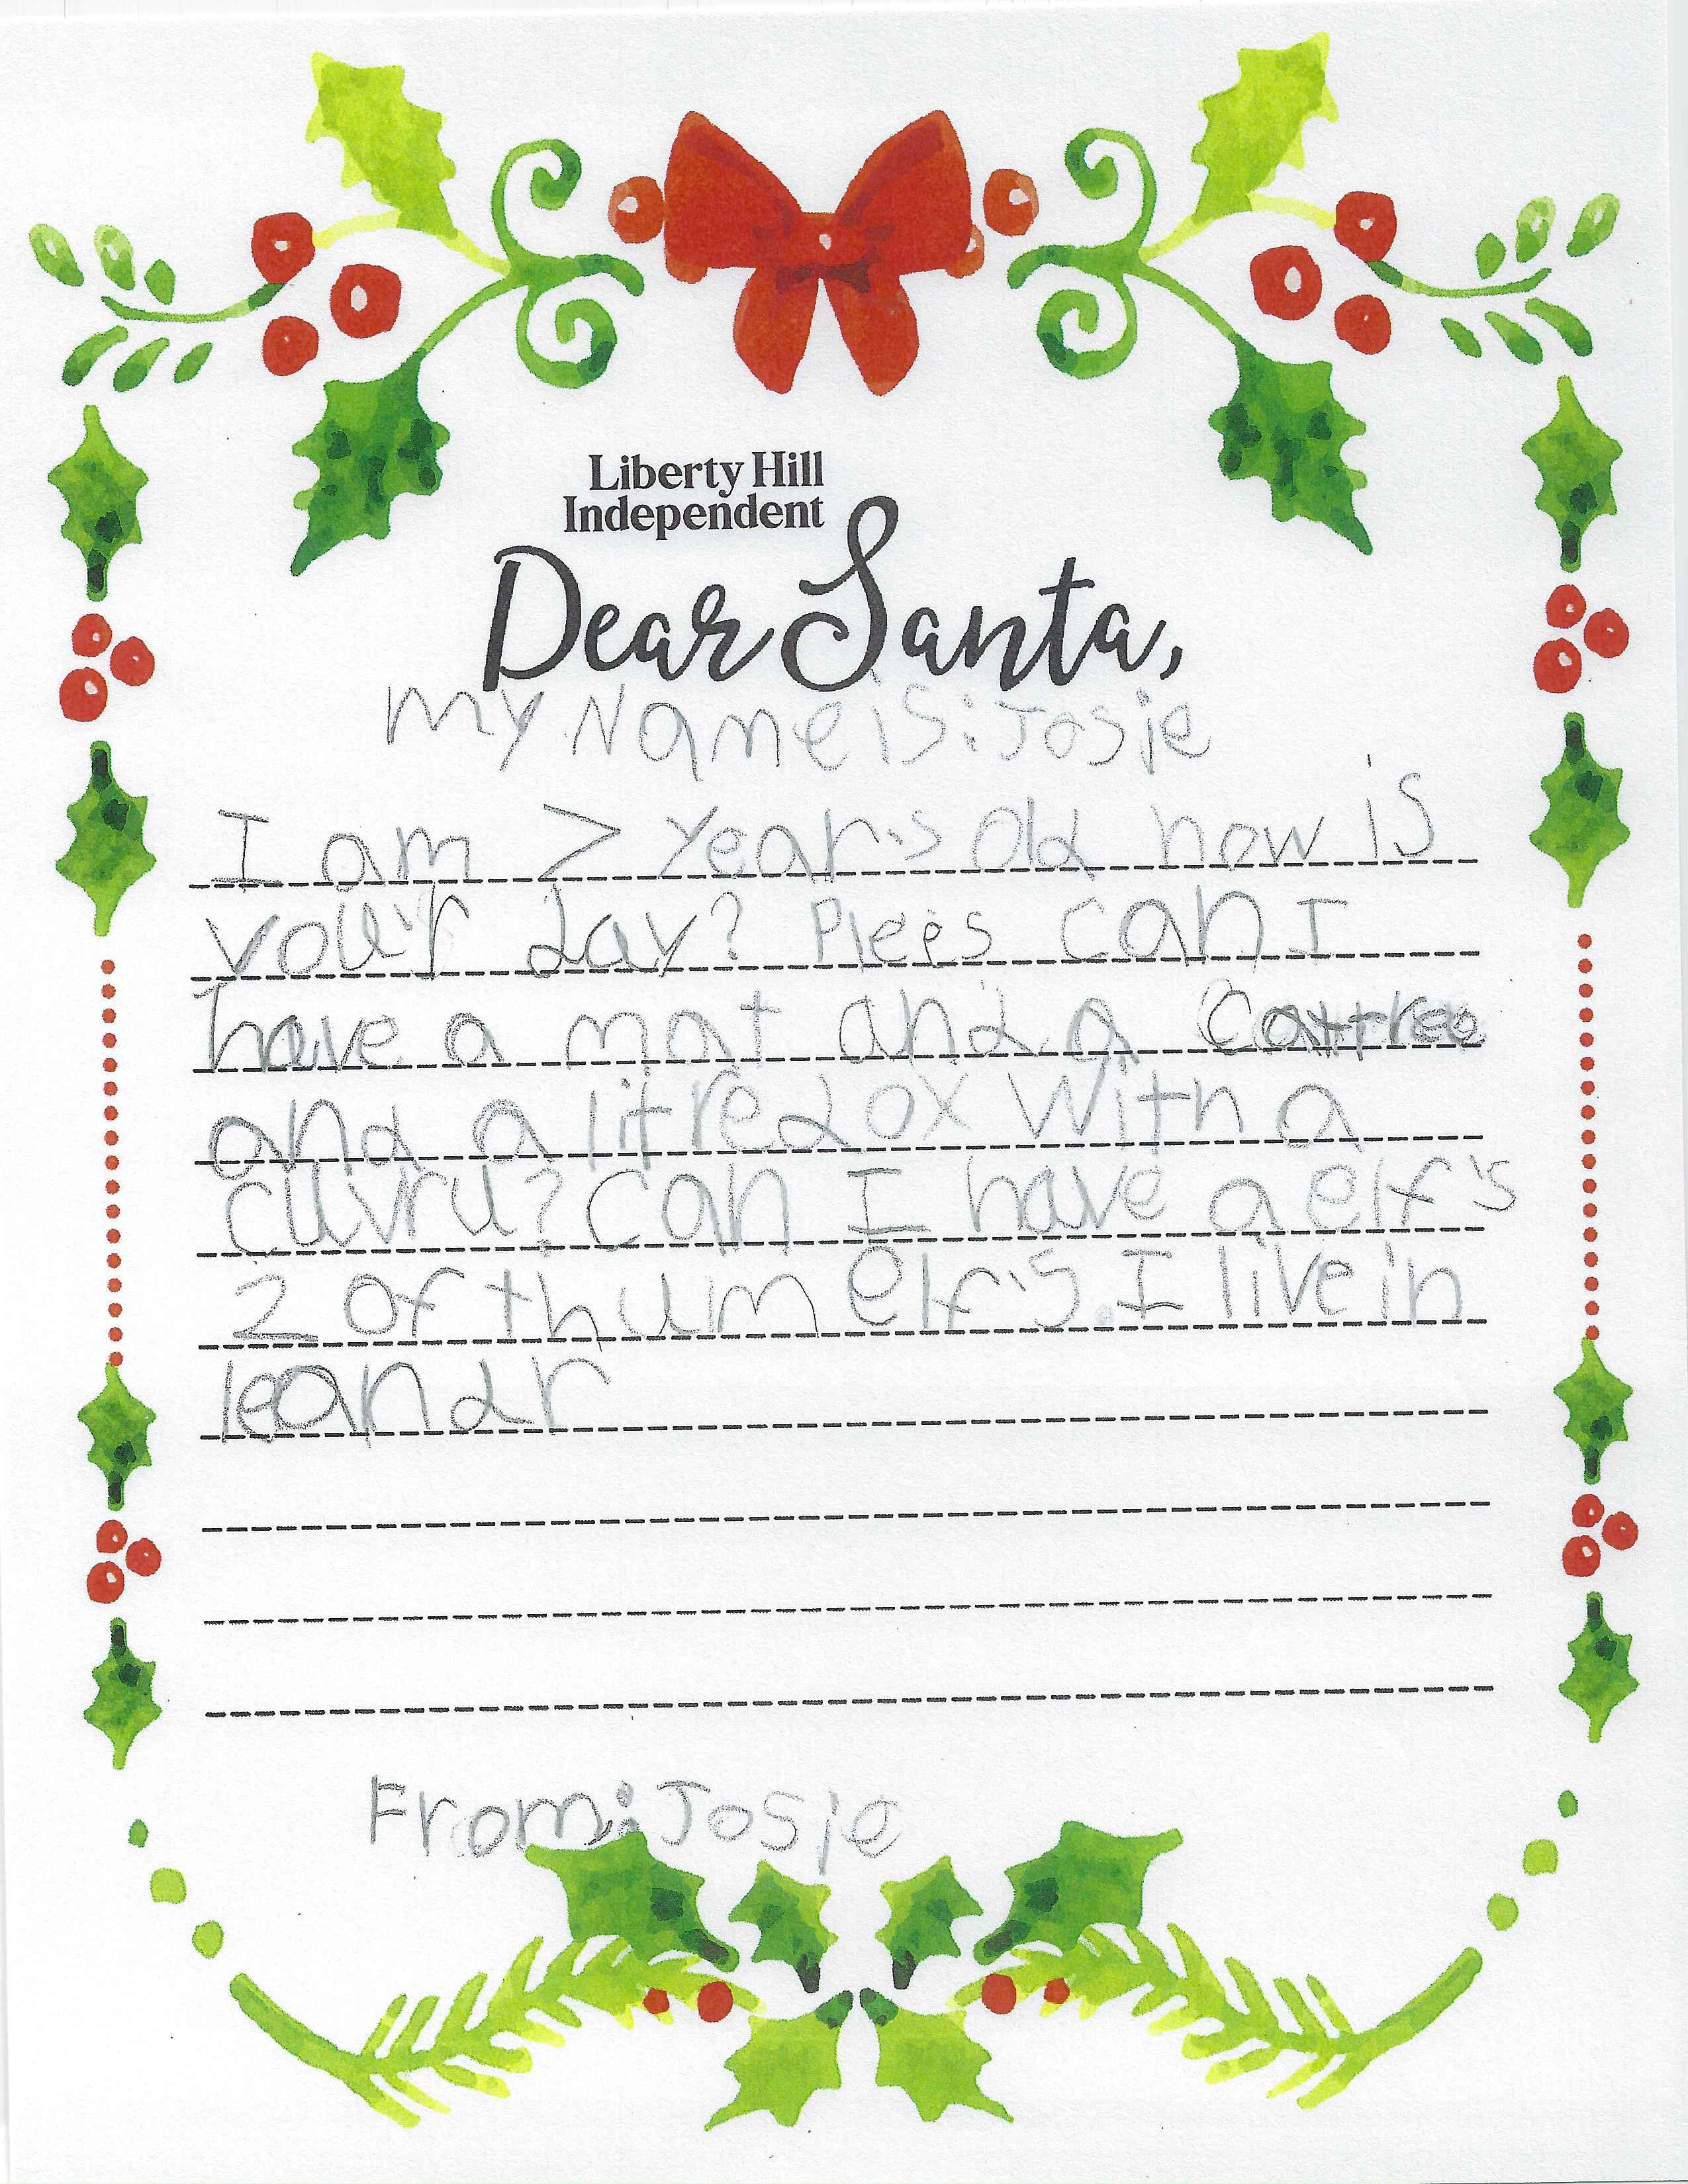 Liberty Hill
Independent
Dear Santa,
My Name is: Josie
I am 7 years old how is
your day? Plees can I
have a mat and a Cattree
and a litredox with a
cuvru? can I have a elf's
2 of thum elf's. I live in
leandr
From: Josie